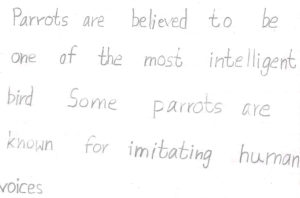 Parrots are believed to be
one of the most intelligent
bird Some parrots are
known for imitating human
voices